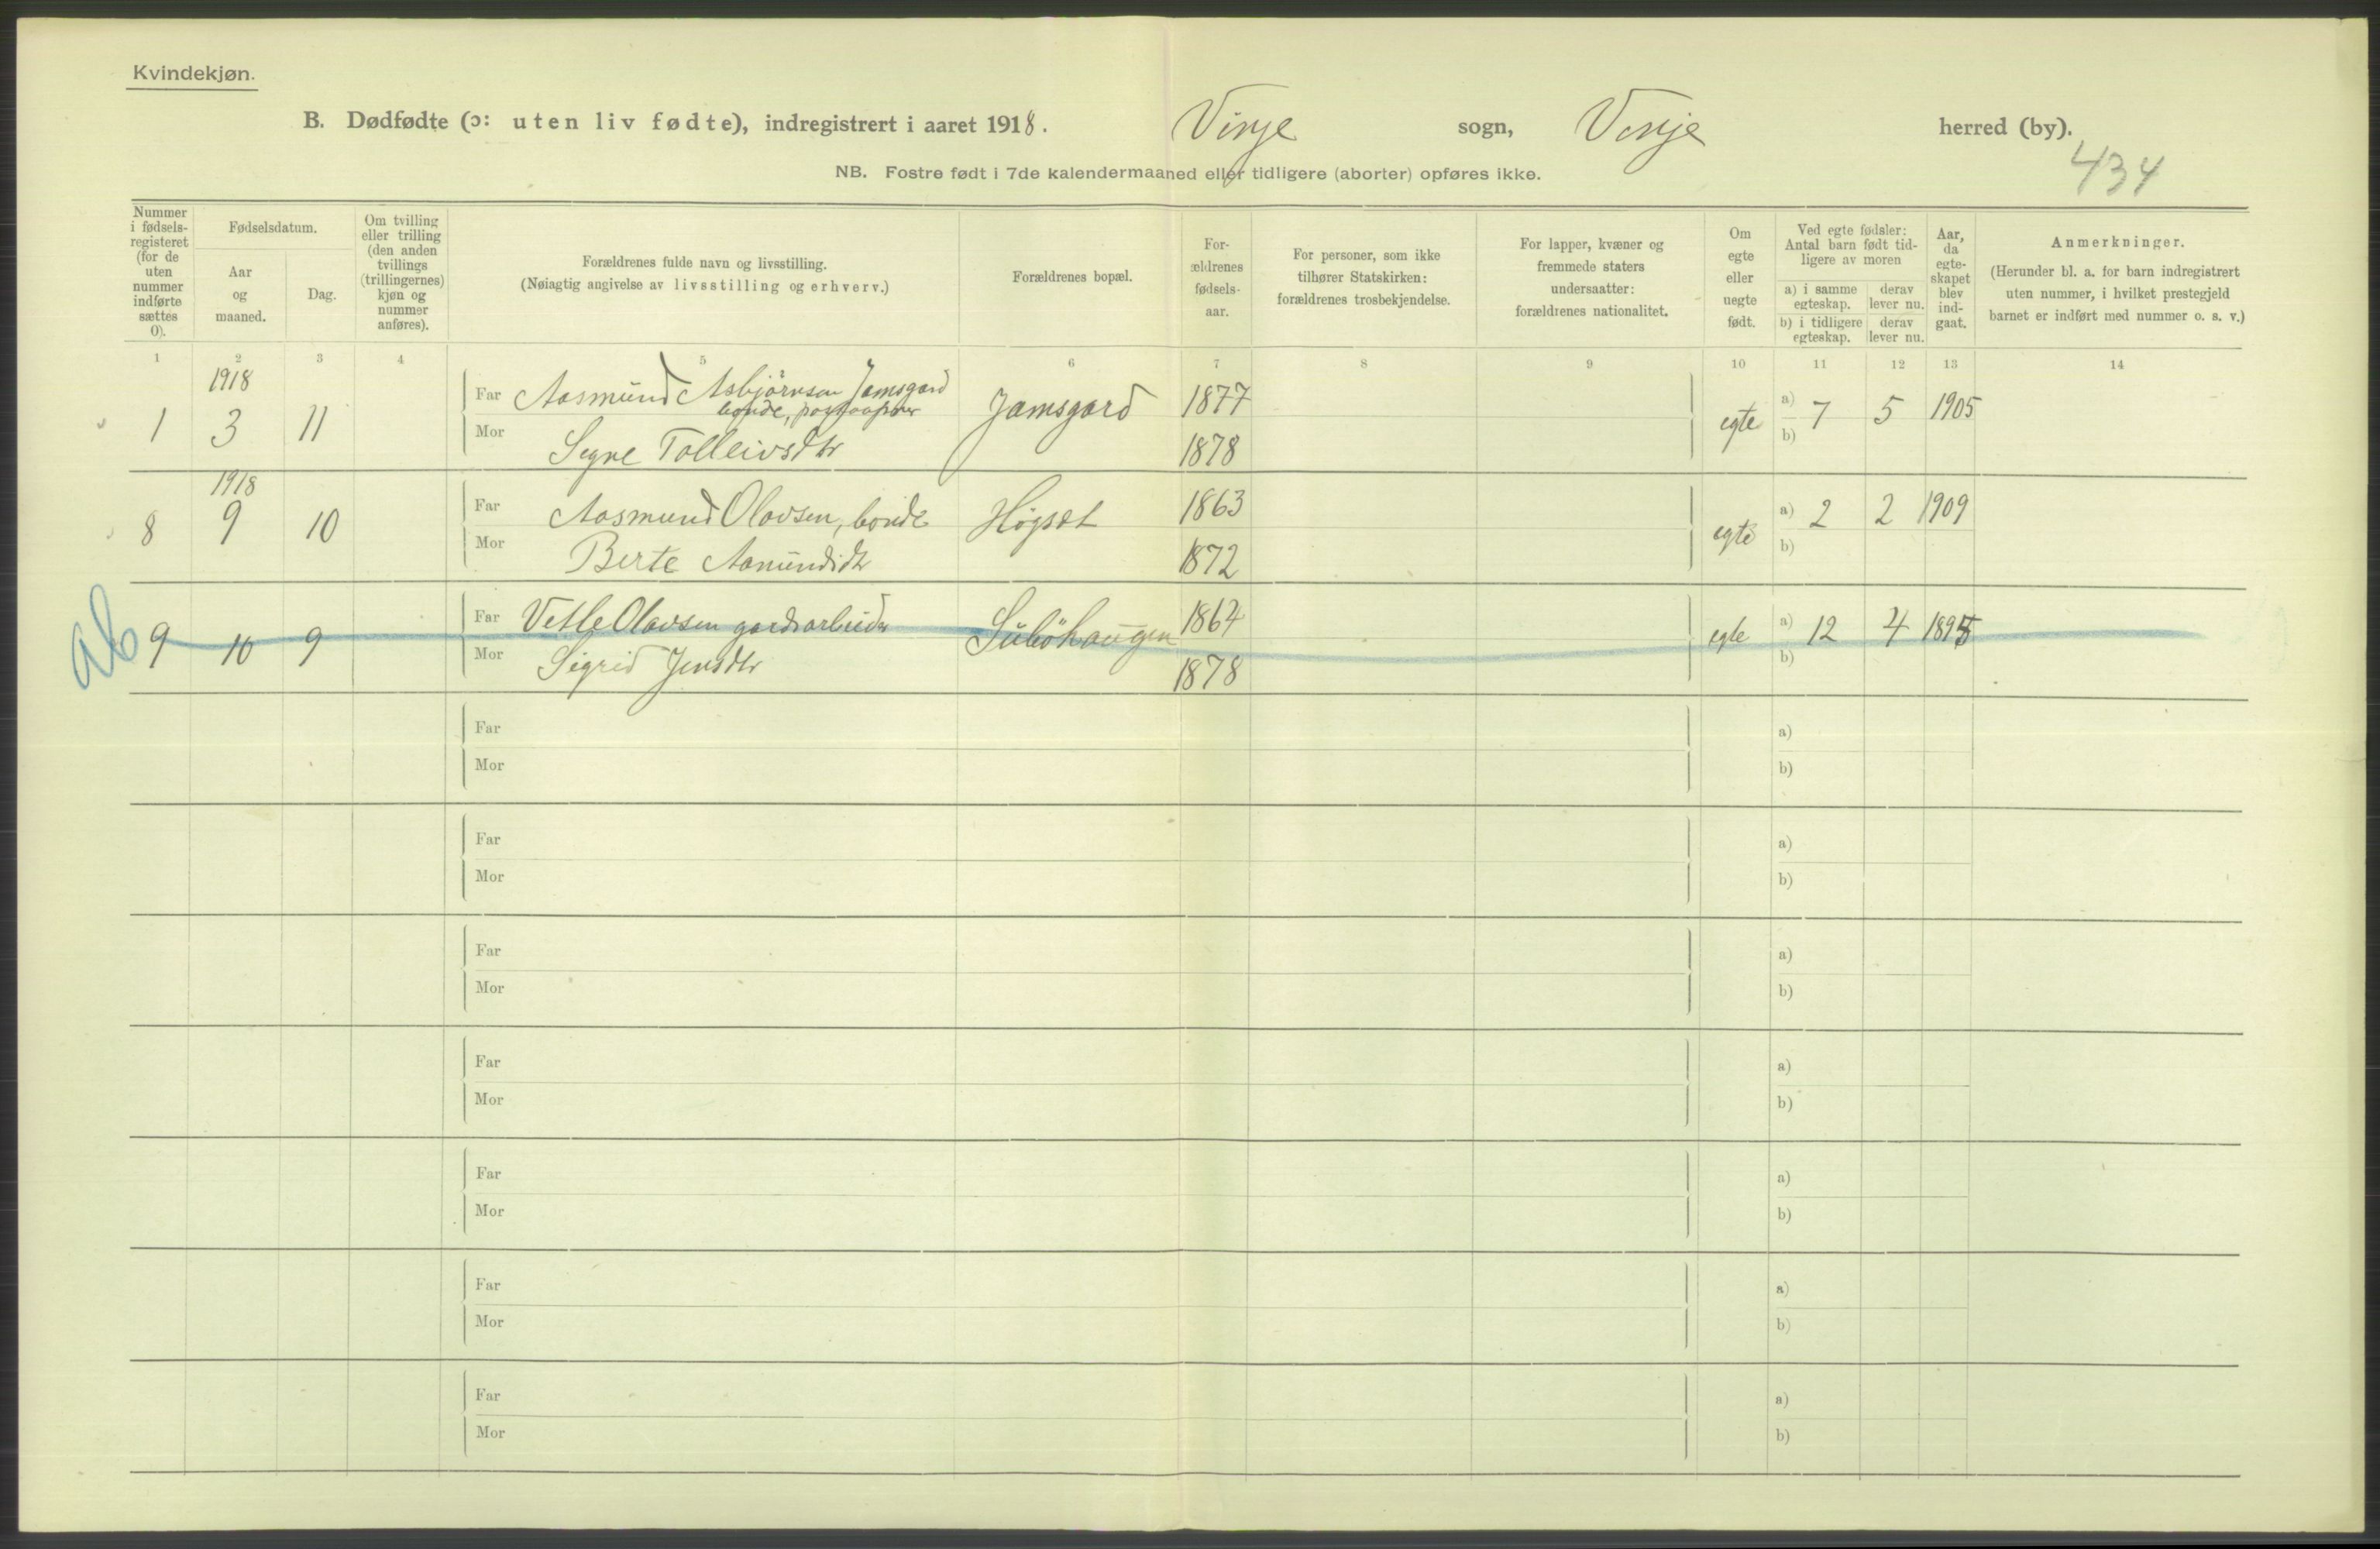 Kvindekjøn.
B. Dødfødte (ɔ: uten liv fødte), indregistrert i aaret 1918. Vinje sogn, Vinje herred (by).
434
NB. Fostre født i 7de kalendermaaned eller tidligere (aborter) opføres ikke.
Nummer i fødsels-registeret (for de uten nummer indførte sættes 0).
Fødselsdatum.
Aar og maaned.
Dag.
Om tvilling eller trilling (den anden tvillings (trillingernes) kjøn og nummer anføres).
Forældrenes fulde navn og livsstilling.
(Nøiagtig angivelse av livsstilling og erhverv.)
Forældrenes bopæl.
For-ældrenes fødsels-aar.
For personer, som ikke tilhører Statskirken: forældrenes trosbekjendelse.
For lapper, kvæner og fremmede staters undersaatter: forældrenes nationalitet.
Om egte eller uegte født.
Ved egte fødsler: Antal barn født tid-ligere av moren
a) i samme egteskap. derav lever nu.
b) i tidligere egteskap. derav lever nu.
Aar, da egte-skapet blev ind-gaat.
Anmerkninger.
(Herunder bl. a. for barn indregistrert uten nummer, i hvilket prestegjeld barnet er indført med nummer o. s. v.)
1 2 3 4 5 6 7 8 9 10 11 12 13 14
1918
1 3 11 Far Aasmund Asbjørnsen Jamsgard Jamsgard 1877 egte a) 7 5 1905
bonde,
Mor Signe Tolleivsdtr 1878 b)
1918
8 9 10 Far Aasmund Olavsen, bonde Høgset 1863 egte a) 2 2 1909
Mor Berte Aamundsdtr 1872 b)
ab 9 10 9 Far Vetle Olavsen gardsarbeider 1864 egte a) 12 4
Mor Sigrid Jensdtr 1878 b)
Far a)
Mor b)
Far a)
Mor b)
Far a)
Mor b)
Far a)
Mor b)
Far a)
Mor b)
Far a)
Mor b)
Far a)
Mor b)